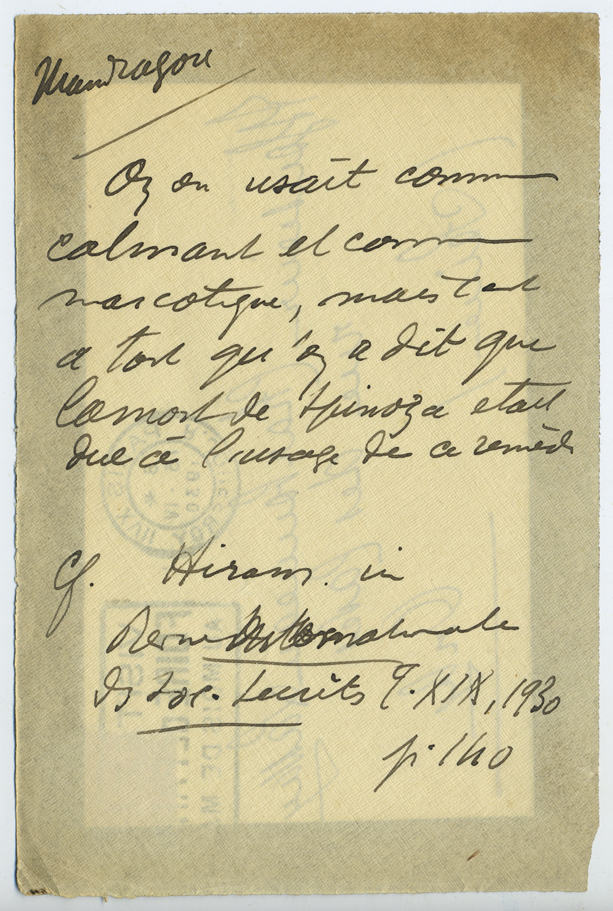 Mandragore
On en usait comme
calmant et comme
narcotique, mais c'est
à tort qu'on a dit que
la mort de Spinoza était
due à l'usage de ce remède
Cf. Hiram. in
Revue Internationale
ds Soc. Secrètes T. XIX, 1930
p. 140